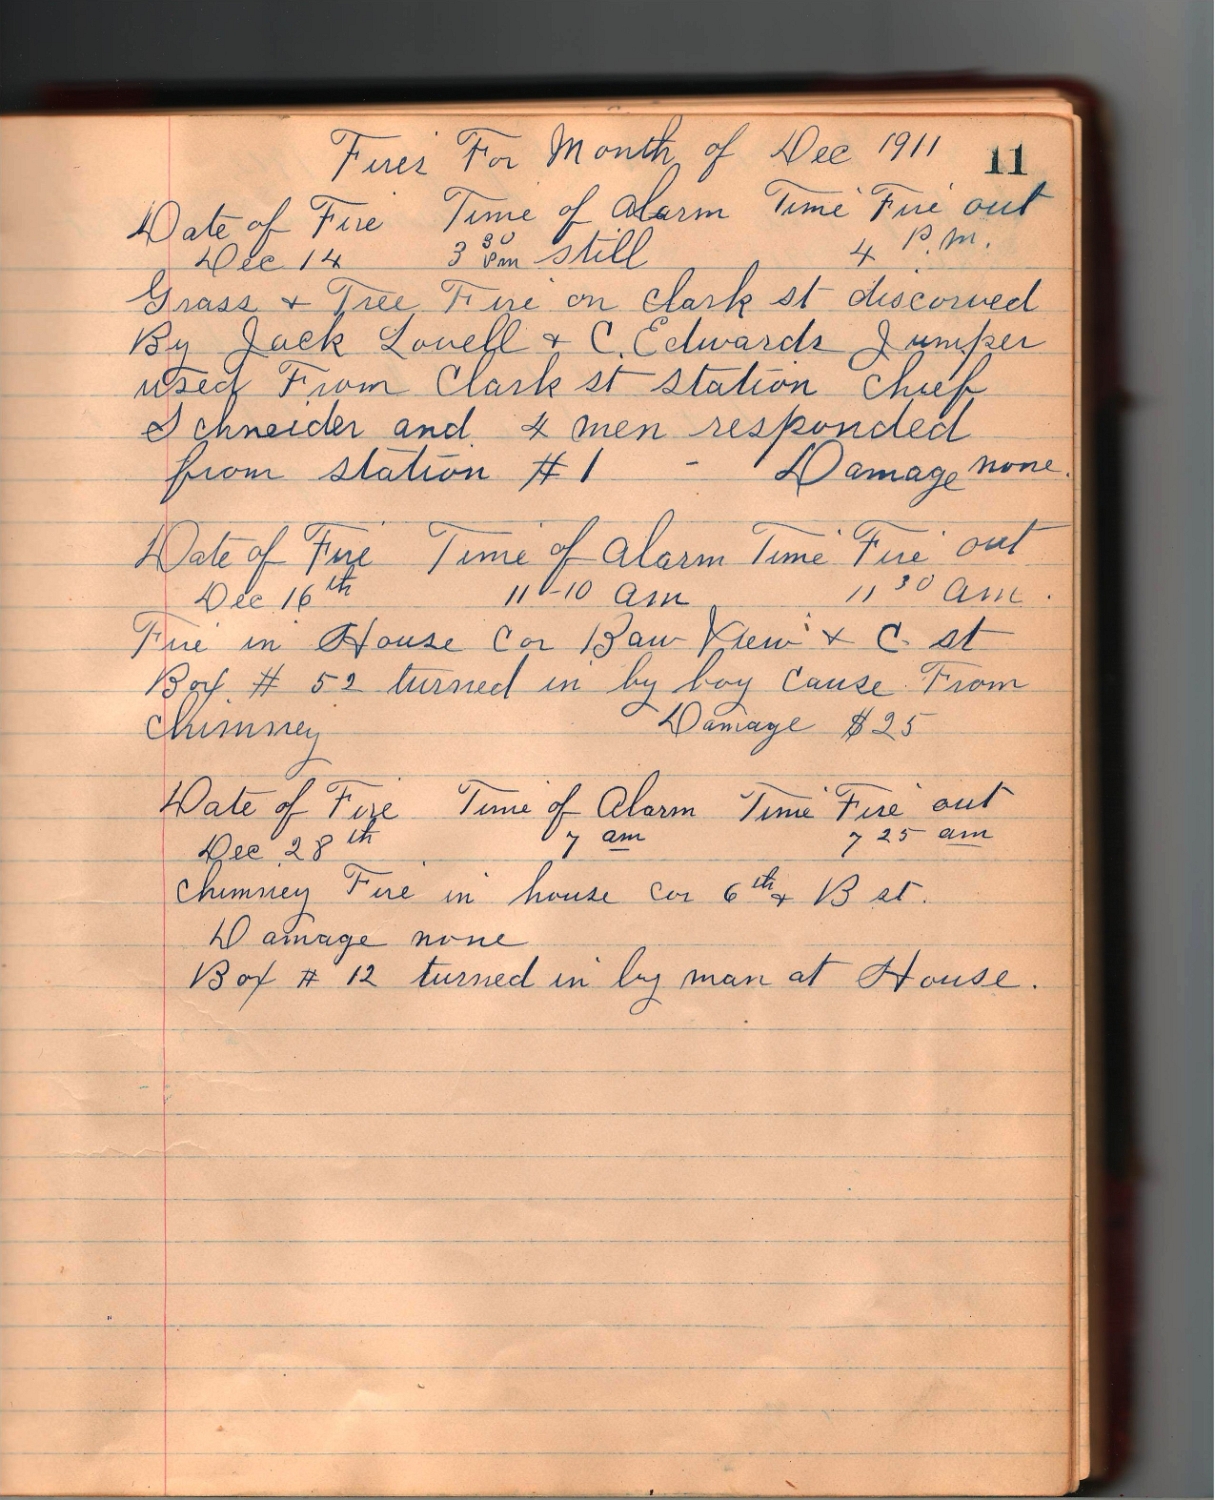 Fires For Month of Dec 1911 11
Date of Fire Time of Alarm Time Fire out
Dec 14 3 30 Pm still 4 P.m.
Grass & Tree Fire on Clark st discorved
By Jack Lovell & C. Edwards Jumper
used From Clark st station Chief
Schneider and 4 men responded
from station # 1 - Damage none.
Date of Fire Time of Alarm Time Fire out
Dec 16th 11-10 am 11 30 am.
Fire in House Cor View & C. st
Box # 52 turned in by boy Cause From
Chimney Damage $25
Date of Fire Time of Alarm Time Fire out
Dec 28th 7 am 7 25 am
Chimney Fire in house cor 6th & B st.
Damage none
Box # 12 turned in by man at House.